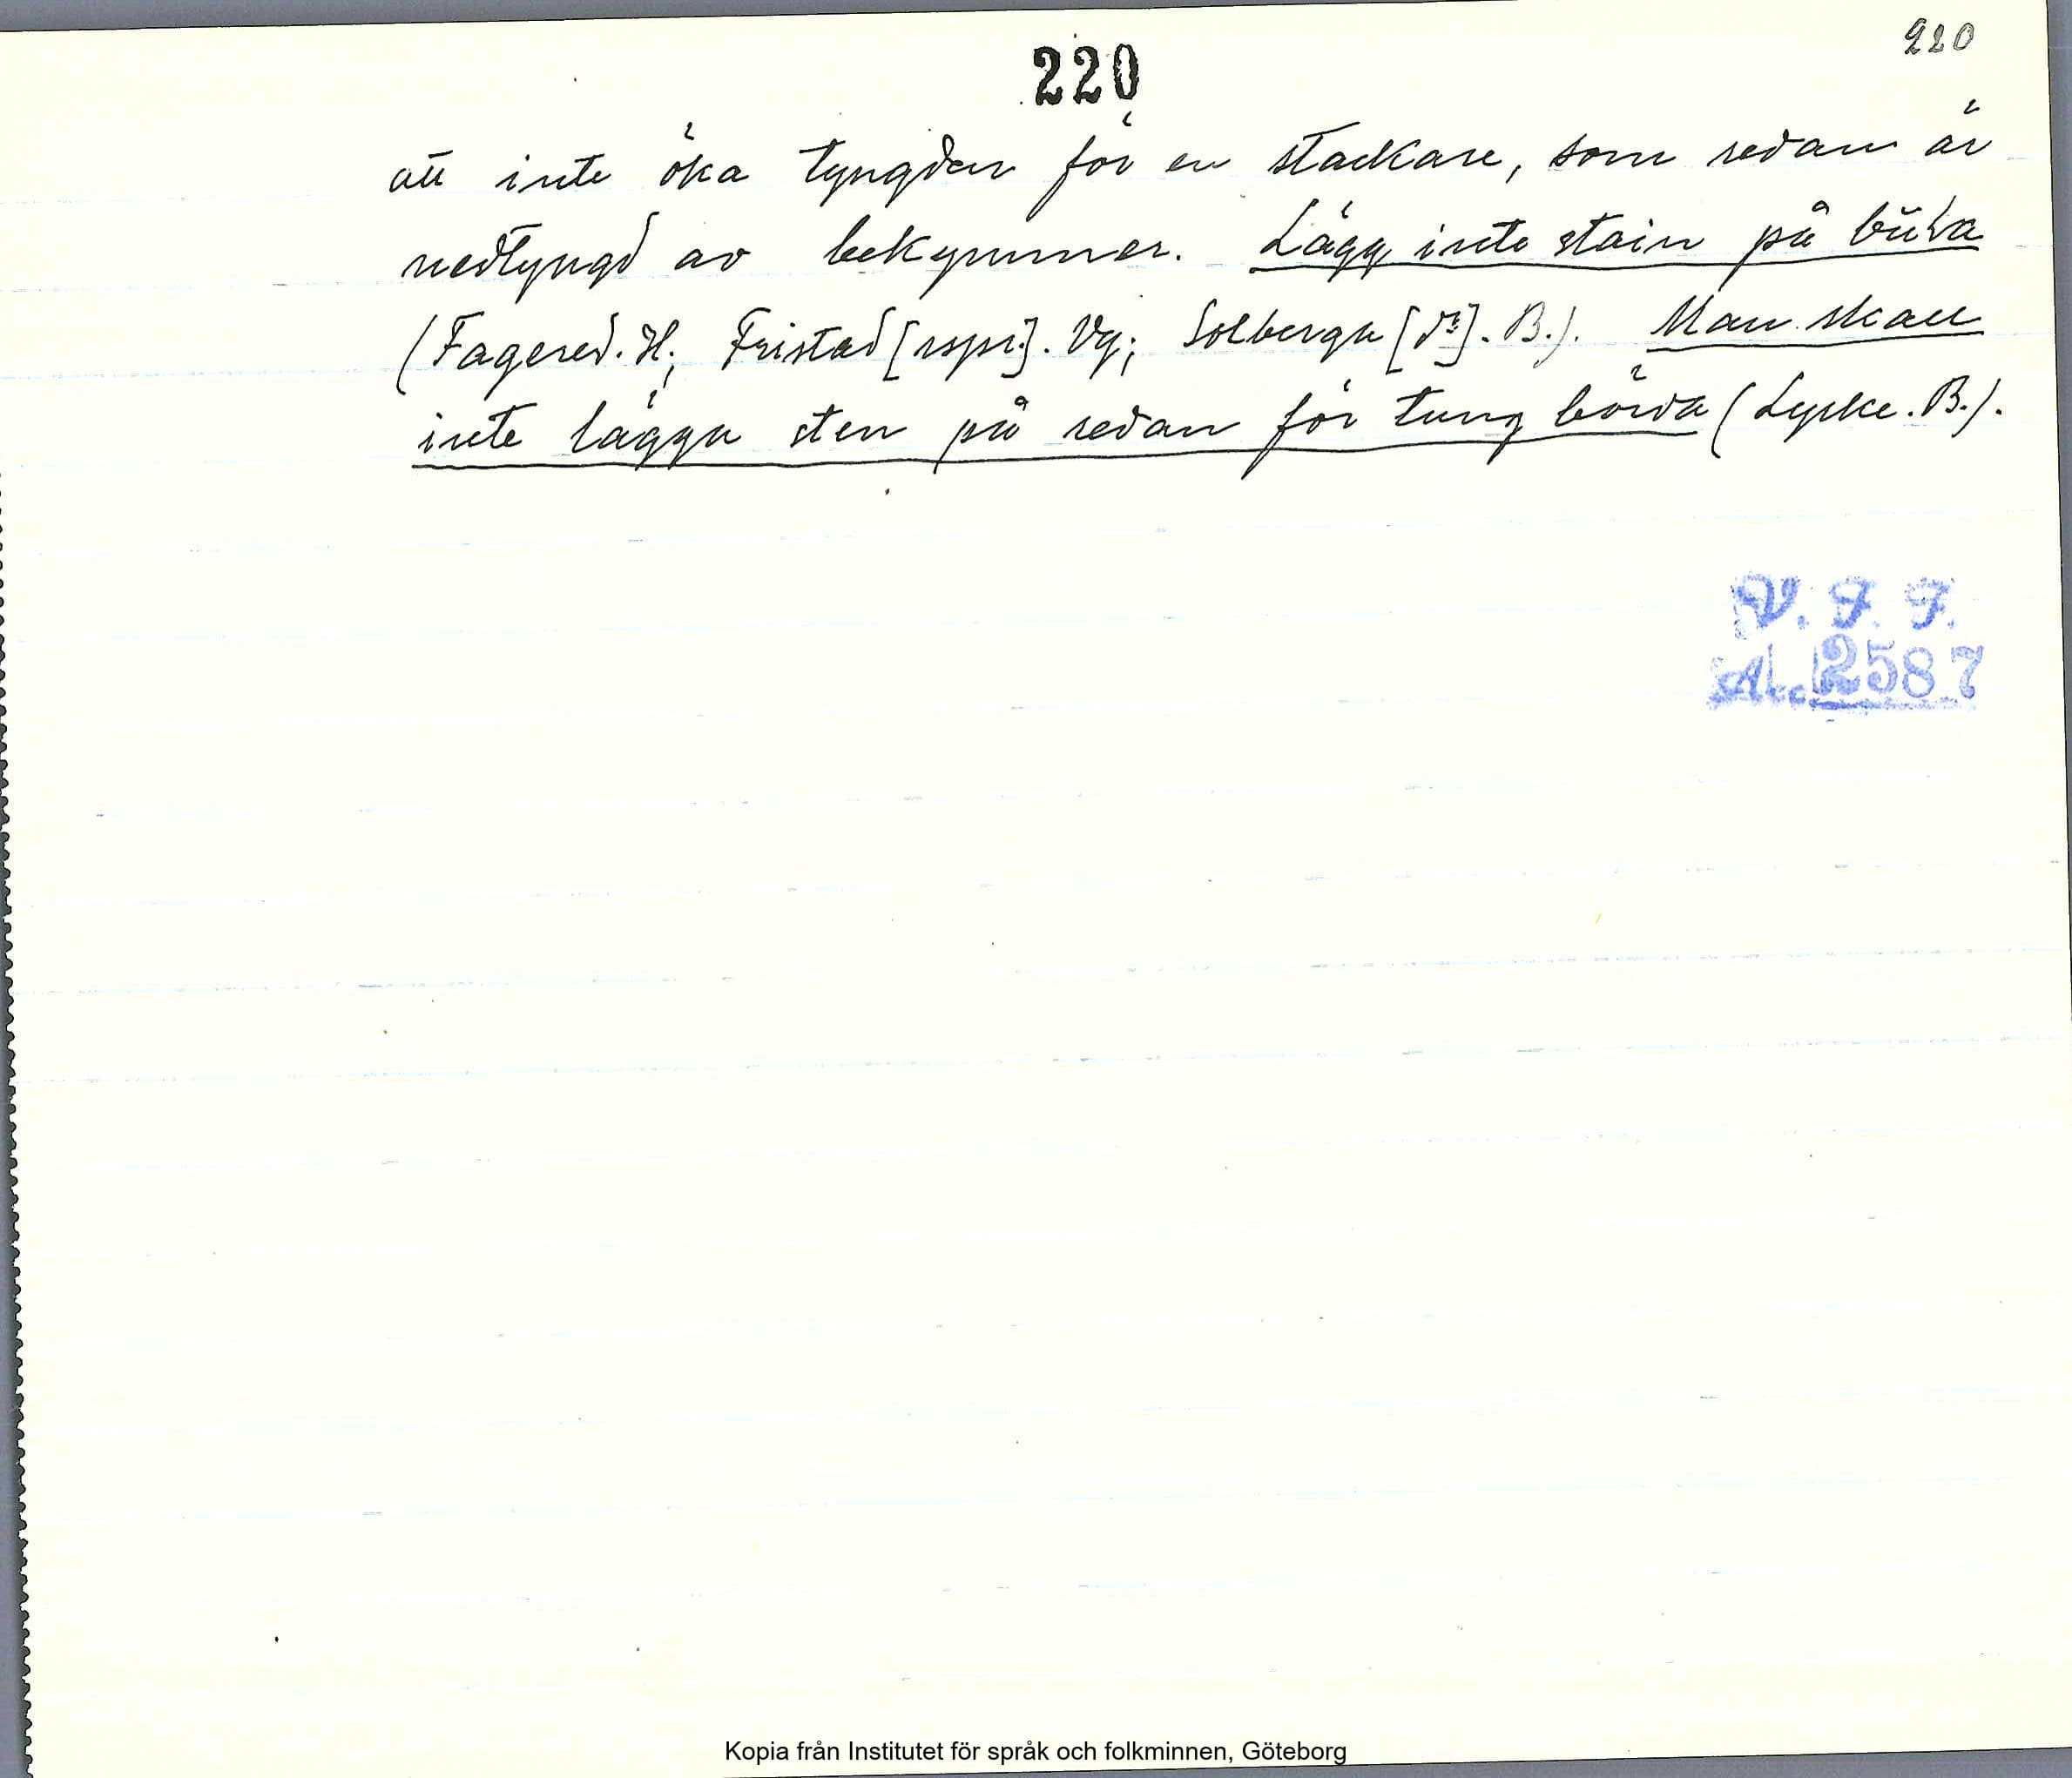 220
220
att inte öka tyngden för en stackare, som redan är
nedtyngd av bekymmer. Lägg inte stain på
(Fagered. H.; Fristad [rspr.]. Vg; Solberga [d:o]. B.). Man skall
inte lägga sten på redan för tung börda (Lyske. B.).
V. F. F.
Acc 2587
Kopia från Institutet för språk och folkminnen, Göteborg